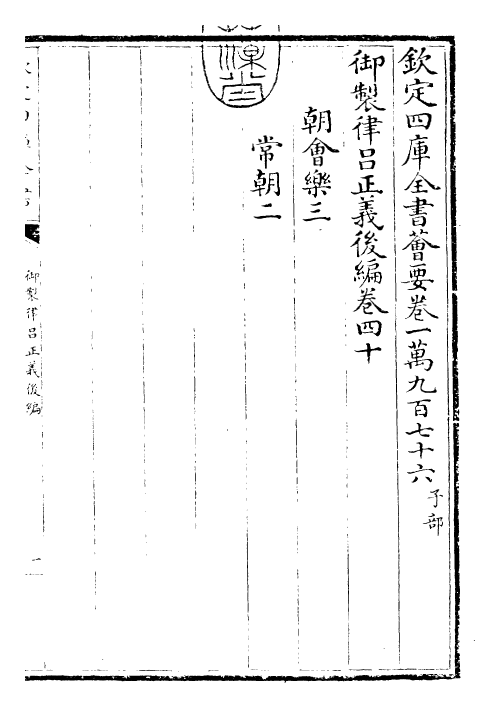 欽定四庫全書薈要卷一萬九百七十六子部
御製律吕正義後編卷四十
朝會樂三
常朝二
御製律吕正義後編
一